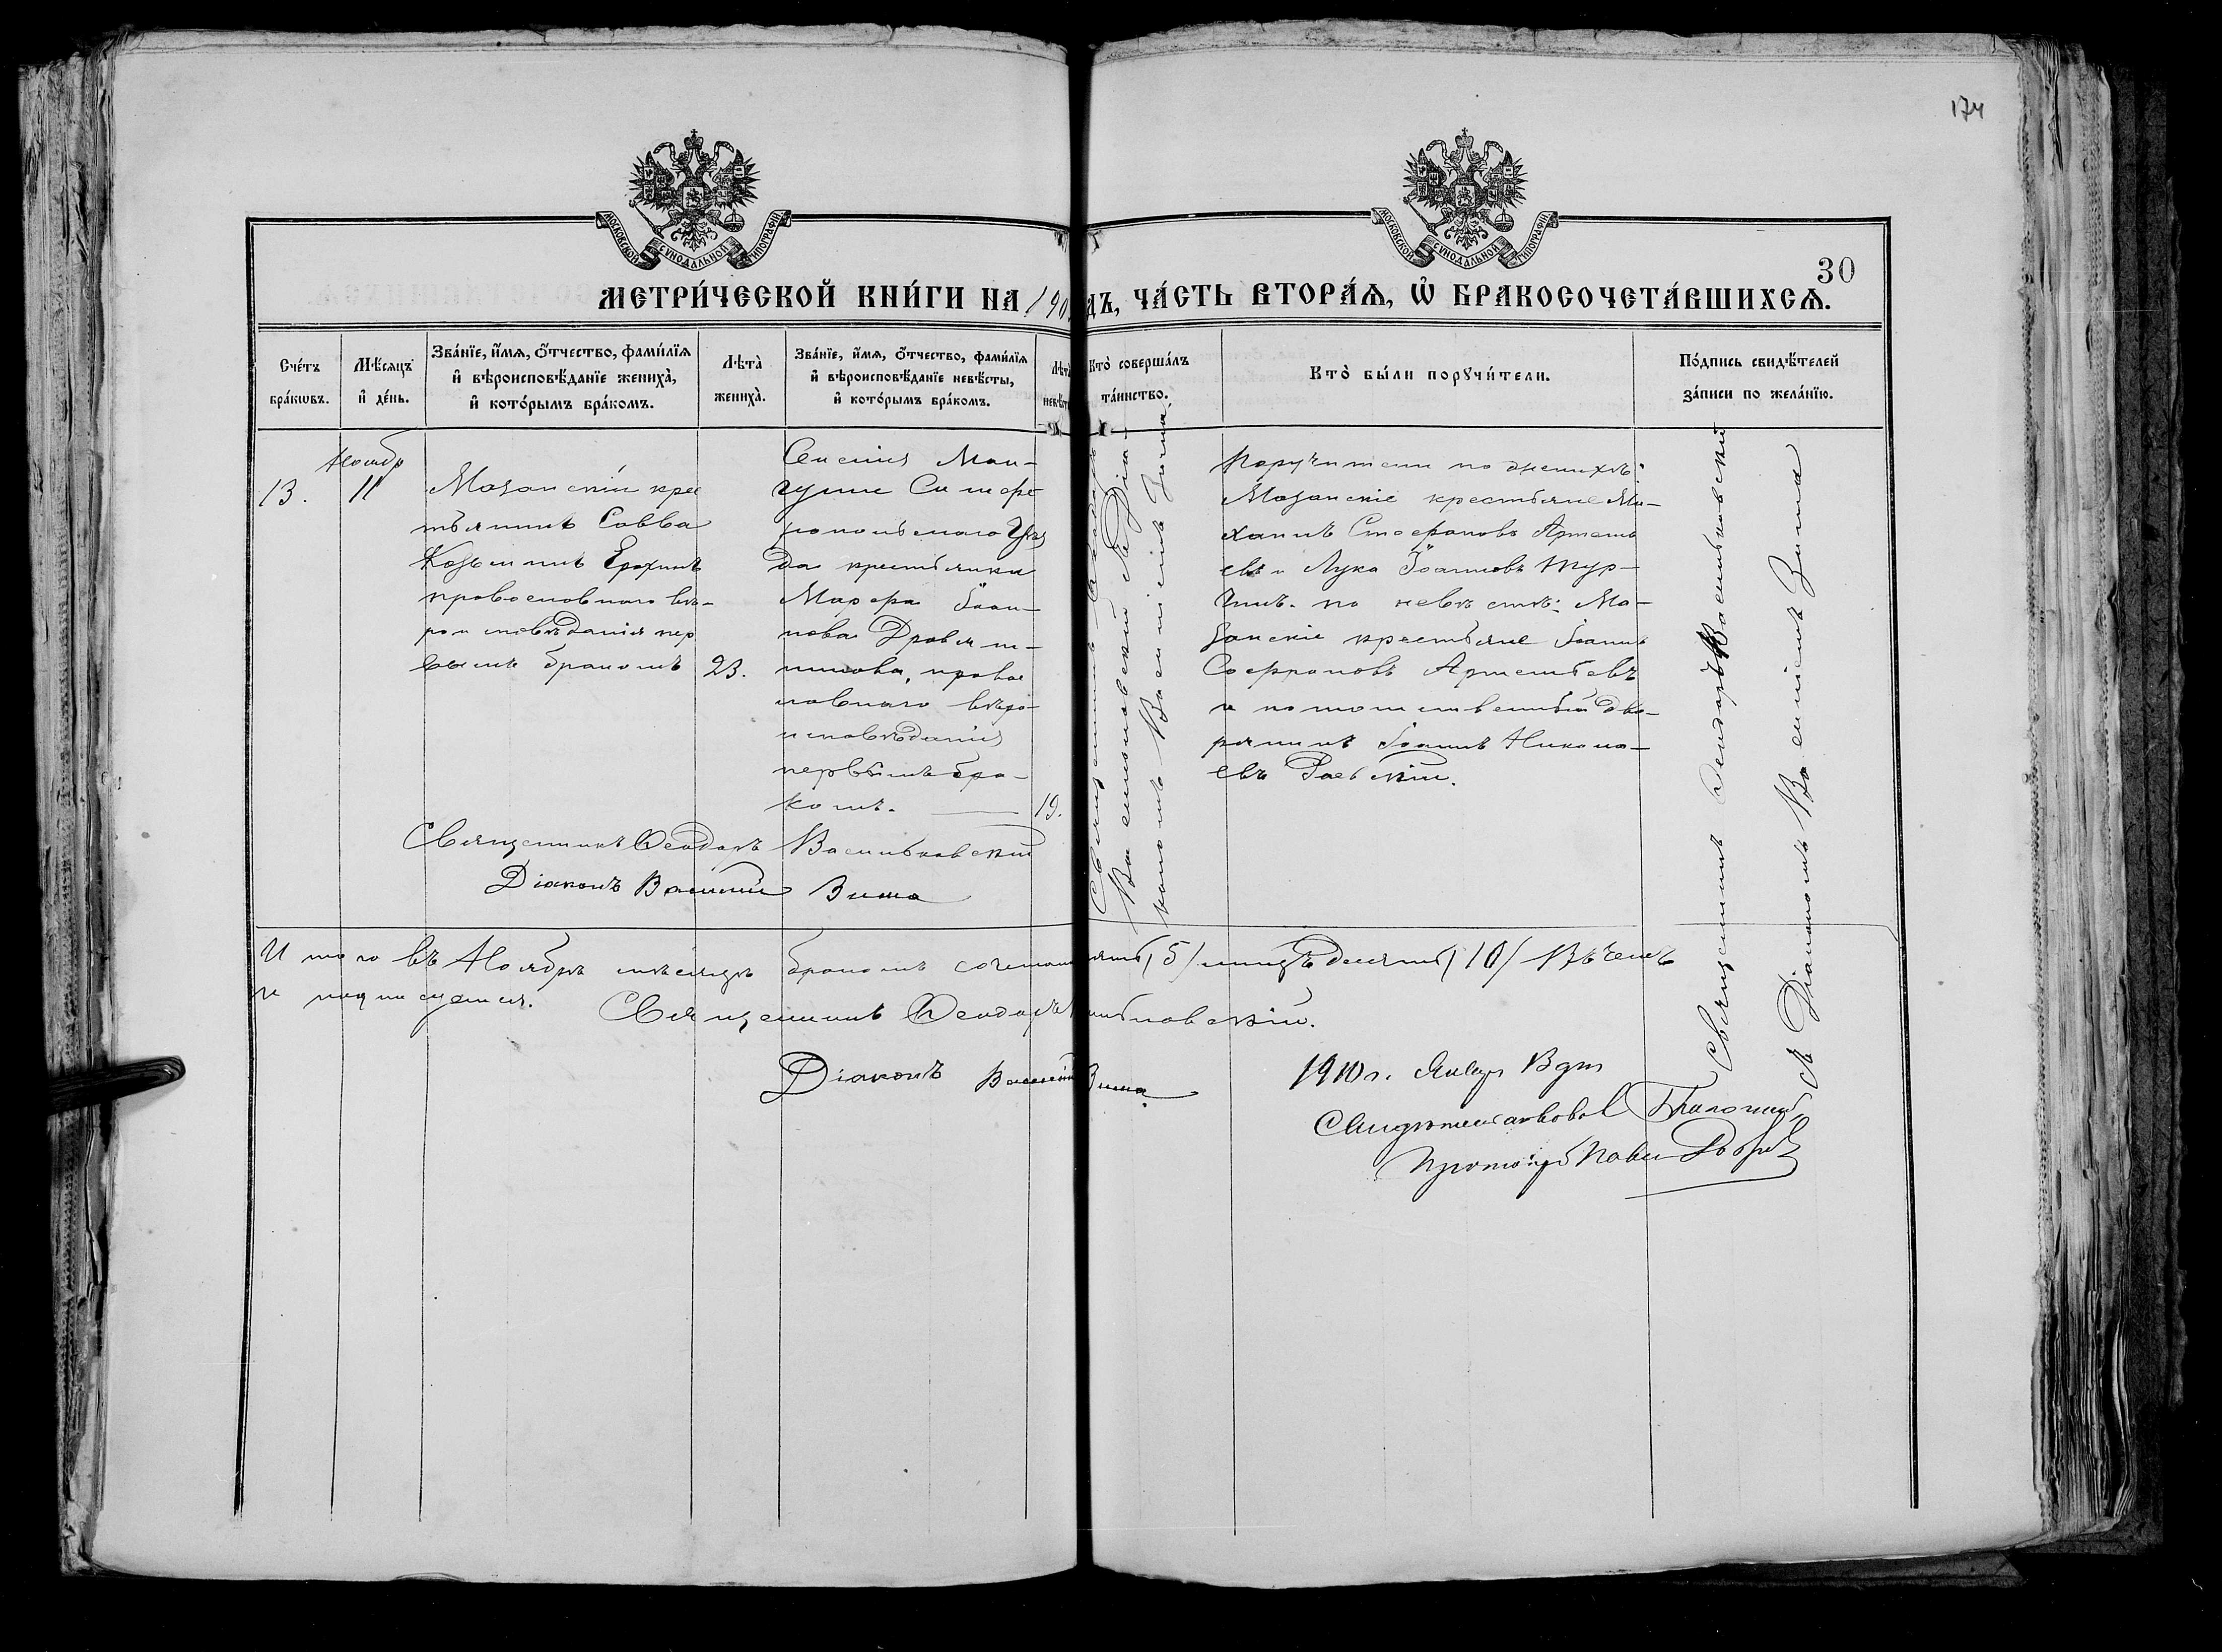 174
МОСКОВСКОЙ СѴНОДАЛЬНОЙ ТИПОГРАФІИ
МОСКОВСКОЙ СѴНОДАЛЬНОЙ ТИПОГРАФІИ
30
МЕТРИ́ЧЕСКОЙ КНИ́ГИ НА 190 ДЪ, ЧА́СТЬ ВТОРА́Ѧ, Ѡ҆ БРАКОСОЧЕТА́ВШИХСѦ.
Сче́тъ
бра́кѡвъ.
Мѣ́сѧцъ
и҆ де́нь.
Зва́нїе, и҆́мѧ, ѻ҆́тчество, фами́лїѧ
и҆ вѣроисповѣ́данїе жениха̀,
и҆ кото́рымъ бра́комъ.
Лѣта̀
жениха̀.
Зва́нїе, и҆́мѧ, ѻ҆́тчество, фами́лїѧ
и҆ вѣроисповѣ́данїе невѣ́сты,
и҆ кото́рымъ бра́комъ.
Лѣта̀
невѣ́сты
Кто̀ соверша́лъ
та́инство.
Кто̀ бы́ли порꙋчи́тели.
По́дпись свидѣ́телей
за́писи по жела́нїю.
13.
Ноябр
11
Мазанскій крес
тьянинъ Савва
Козьминъ Ерохинъ
православнаго вѣ-
роисповѣданія пер
вымъ бракомъ
23.
Селенія Ман-
гуши Симфе
ропольскаго Уѣз
да крестьянка
Марфа Іоан-
нова Дровян-
никова, правос
лавнаго вѣро-
исповѣданія
первымъ бра-
комъ.
19.
Священникъ Ѳеодоръ
Васильковскій съ Діа-
кономъ Василіемъ Зима.
Поручители по женихѣ:
Мазанскіе крестьяне Ми-
хаилъ Стефановъ Артемь
евъ и Лука Іоанновъ Тур-
чинъ. по невѣстѣ: Ма-
занскіе крестьяне Іоаннъ
Софроновъ Артемьевъ
и потомственный дво-
рянинъ Іоаннъ Никола-
евъ Раевскій.
Священникъ Ѳеодоръ Васильковскій
съ Діакономъ Василіемъ Зима
Священникъ Ѳеодоръ Васильковскій
Діаконъ Василій Зима
Итого въ Ноябрѣ мѣсяцѣ бракомъ сочетан пять /5/ лицъ десять /10/ В чемъ
и подписуемся. Священникъ Ѳеодоръ ильковскій.
Діаконъ Василій Зима.
1910 г. Январ
Свидѣтельствовалъ Благочинный
Протоіерей Павел